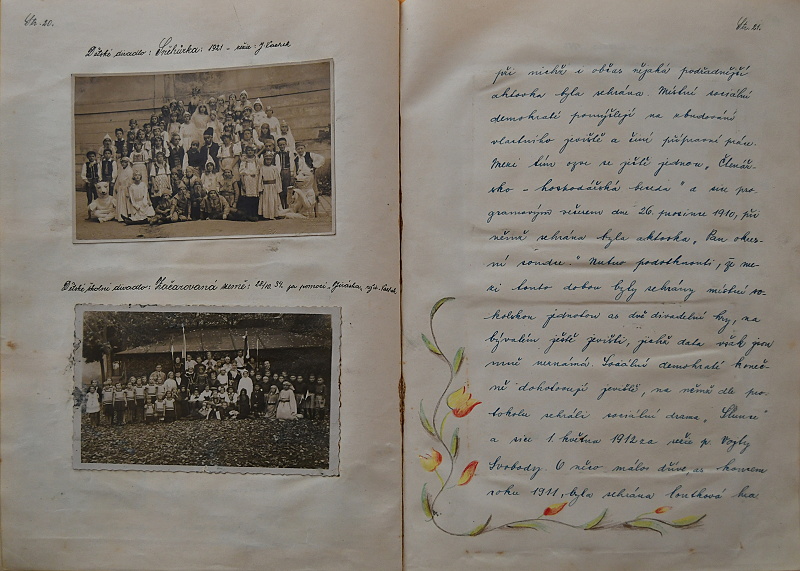 Str. 20.
Dětské divadlo: Sněhůrka: 1921 - režie: J.
Dětské školní divadlo: Začarovaná země: 22/IV. 34. za pomoci,
Str. 21.
při nichž i občas nějaká podřadnější
aktovka byla sehrána. Místní sociální
demokraté pomýšlejí na zbudování
vlastního jeviště a činí přípravné práce.
Mezi tím ozve se ještě jednou „Čtenář-
sko - hospodářská beseda" a sice pro-
gramovým večerem dne 26. prosince 1910, při
němž sehrána byla aktovka „Pan okres-
ní soudce." Nutno podotknouti, že me-
zi touto dobou byly sehrány místní so-
kolskou jednotou as dvě divadelní hry, na
bývalém ještě jevišti, jichž data však jsou
mně neznámá. Sociální demokraté koneč-
ně dohotovují jeviště, na němž dle pro-
tokolu sehráli sociální drama „Slunce"
a sice 1. května 1912 za režie p. Vojty
Svobody. O něco málo dříve, as koncem
roku 1911, byla sehrána loutková hra